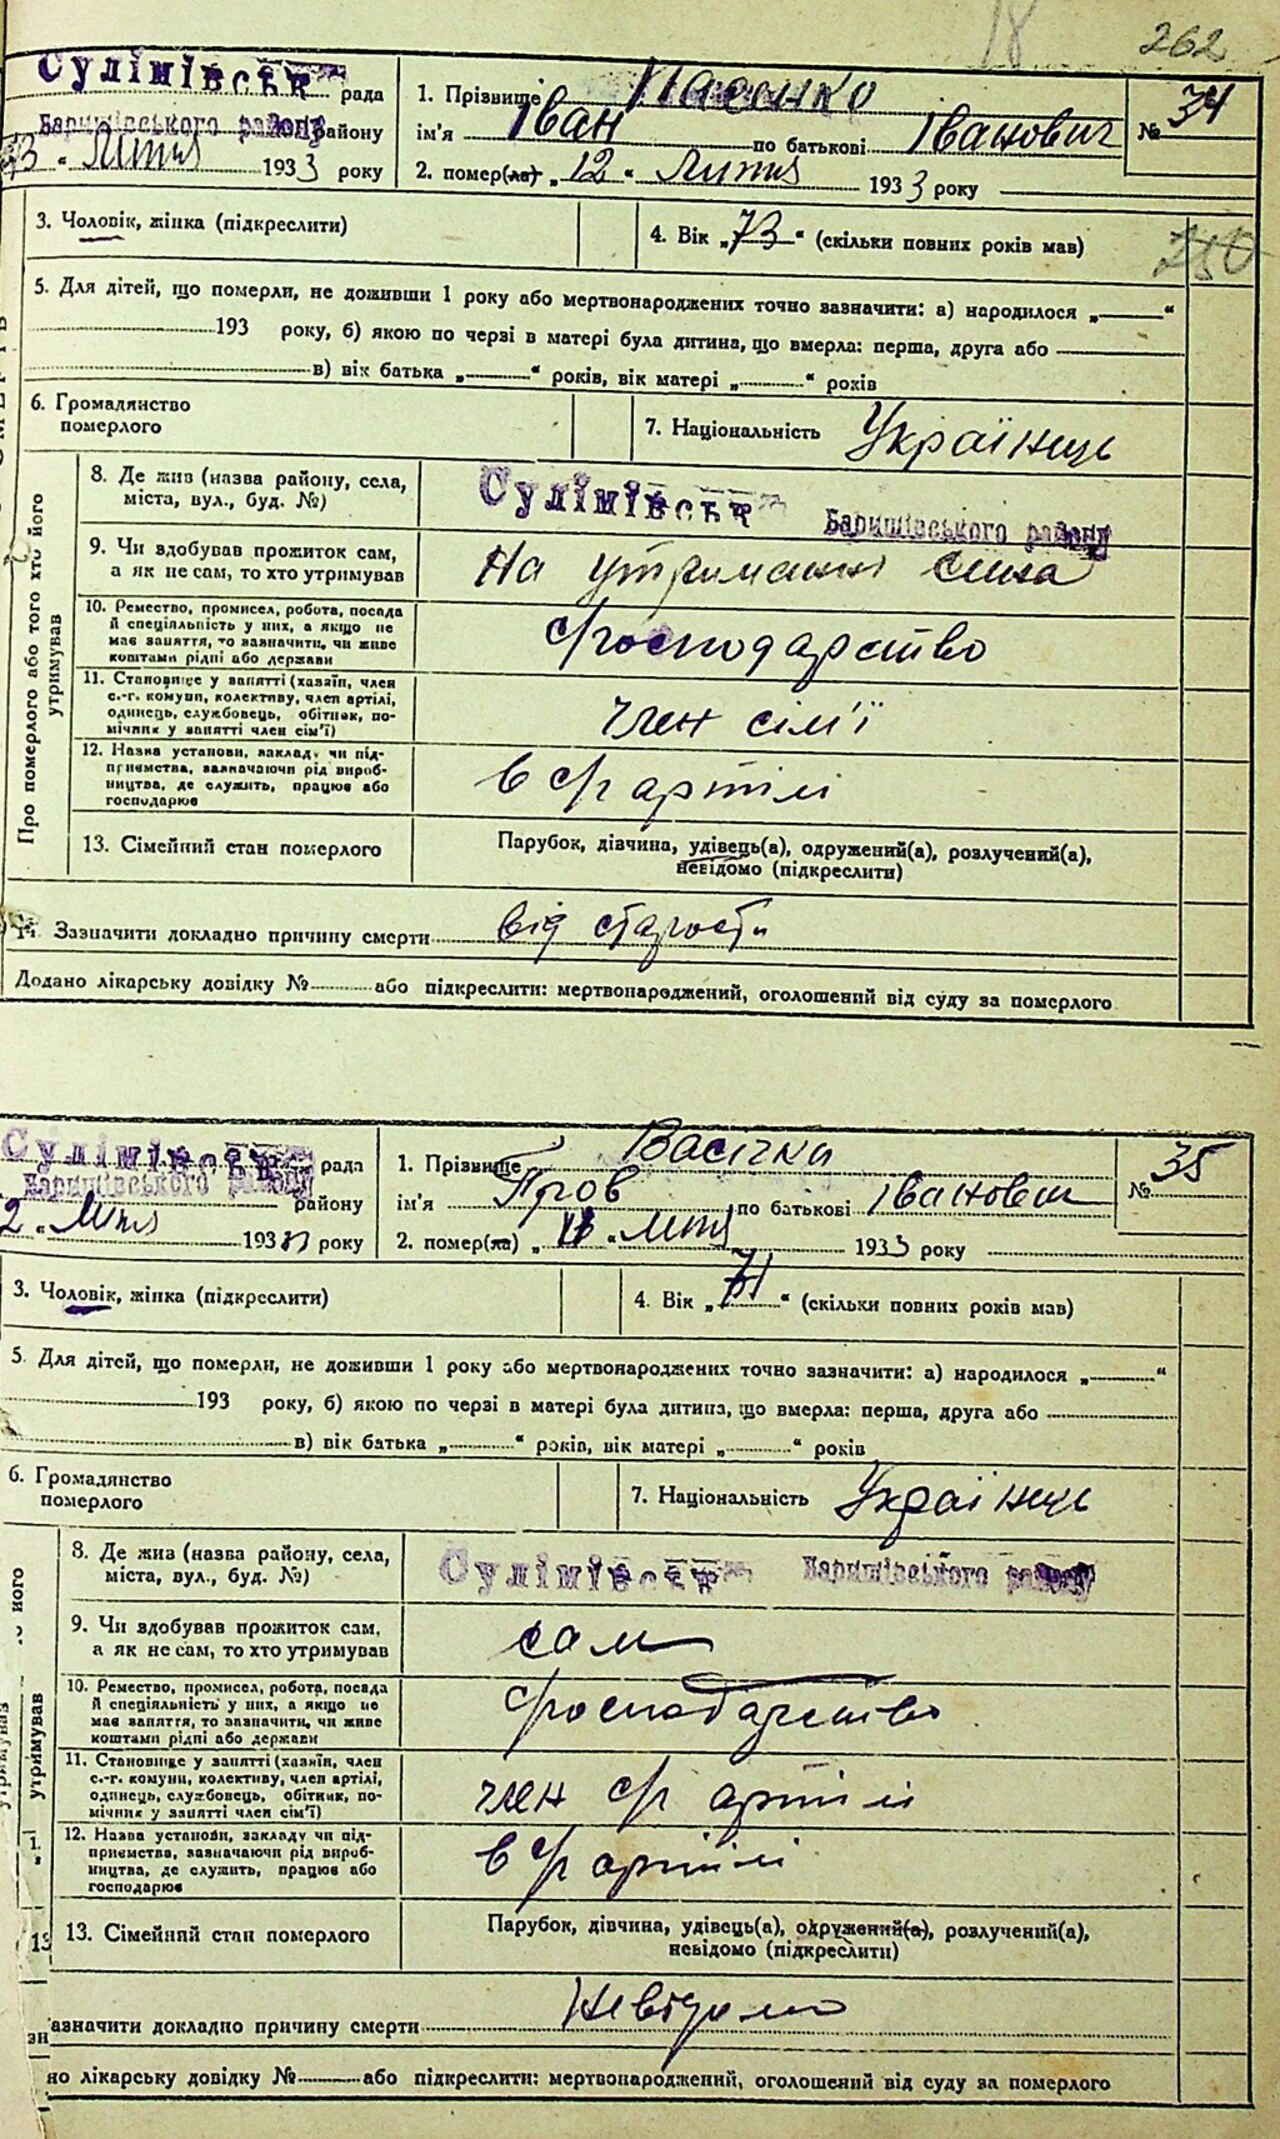 18 262
Сулімівськ рада
Баришівського району району
13 " Лютня 1933 року
1. Прізвище Пасічко
ім'я Іван по батькові Іванович
2. помер(ла) „ 12 " Лютня 1933 року
№ 34
3. Чоловік, жінка (підкреслити)
4. Вік „ 73 " (скільки повних років мав)
5. Для дітей, що померли, не доживши 1 року або мертвонароджених точно зазначити: а) народилося „ "
193 року, б) якою по черзі в матері була дитина, що вмерла: перша, друга або
в) вік батька „ " років, вік матері „ " років
6. Громадянство
померлого
7. Національність Українець
Про померлого або того хто його
утримував
8. Де жив (назва району, села,
міста, вул., буд. №)
Сулімівськ Баришівського району
9. Чи здобував прожиток сам,
а як не сам, то хто утримував
На утриманні сина
10. Ремество, промисел, робота, посада
й спеціяльність у них, а якщо не
має заняття, то зазначити, чи живе
коштами рідні або держави
с/господарство
11. Становище у занятті (хазяїн, член
с.-г. комуни, колективу, член артілі,
одинець, службовець, обітник, по-
мічник у занятті член сім'ї)
член сім'ї
12. Назва установи, закладу чи під-
приємства, зазначаючи рід вироб-
ництва, де служить, працює або
господарює
в с/г артілі
13. Сімейний стан померлого
Парубок, дівчина, удівець(а), одружений(а), розлучений(а),
невідомо (підкреслити)
14. Зазначити докладно причину смерти від старости
Додано лікарську довідку № або підкреслити: мертвонароджений, оголошений від суду за померлого
Сулімівськ рада
Баришівського району району
2 " Лютня 1933 року
1. Прізвище Васічка
ім'я Пров по батькові Іванович
2. помер(ла) „ " Лютня 1933 року
№ 35
3. Чоловік, жінка (підкреслити)
4. Вік „ 71 " (скільки повних років мав)
5. Для дітей, що померли, не доживши 1 року або мертвонароджених точно зазначити: а) народилося „ "
193 року, б) якою по черзі в матері була дитина, що вмерла: перша, друга або
в) вік батька „ " років, вік матері „ " років
6. Громадянство
померлого
7. Національність Українець
утримував
8. Де жив (назва району, села,
міста, вул., буд. №)
Сулімівськ Баришівського району
9. Чи здобував прожиток сам,
а як не сам, то хто утримував
сам
10. Ремество, промисел, робота, посада
й спеціяльність у них, а якщо не
має заняття, то зазначити, чи живе
коштами рідні або держави
с/господарство
11. Становище у занятті (хазяїн, член
с.-г. комуни, колективу, член артілі,
одинець, службовець, обітник, по-
мічник у занятті член сім'ї)
член с/г артілі
12. Назва установи, закладу чи під-
приємства, зазначаючи рід вироб-
ництва, де служить, працює або
господарює
в с/г артілі
13. Сімейний стан померлого
Парубок, дівчина, удівець(а), одружений(а), розлучений(а),
невідомо (підкреслити)
азначити докладно причину смерти Невідомо
но лікарську довідку № або підкреслити: мертвонароджений, оголошений від суду за померлого